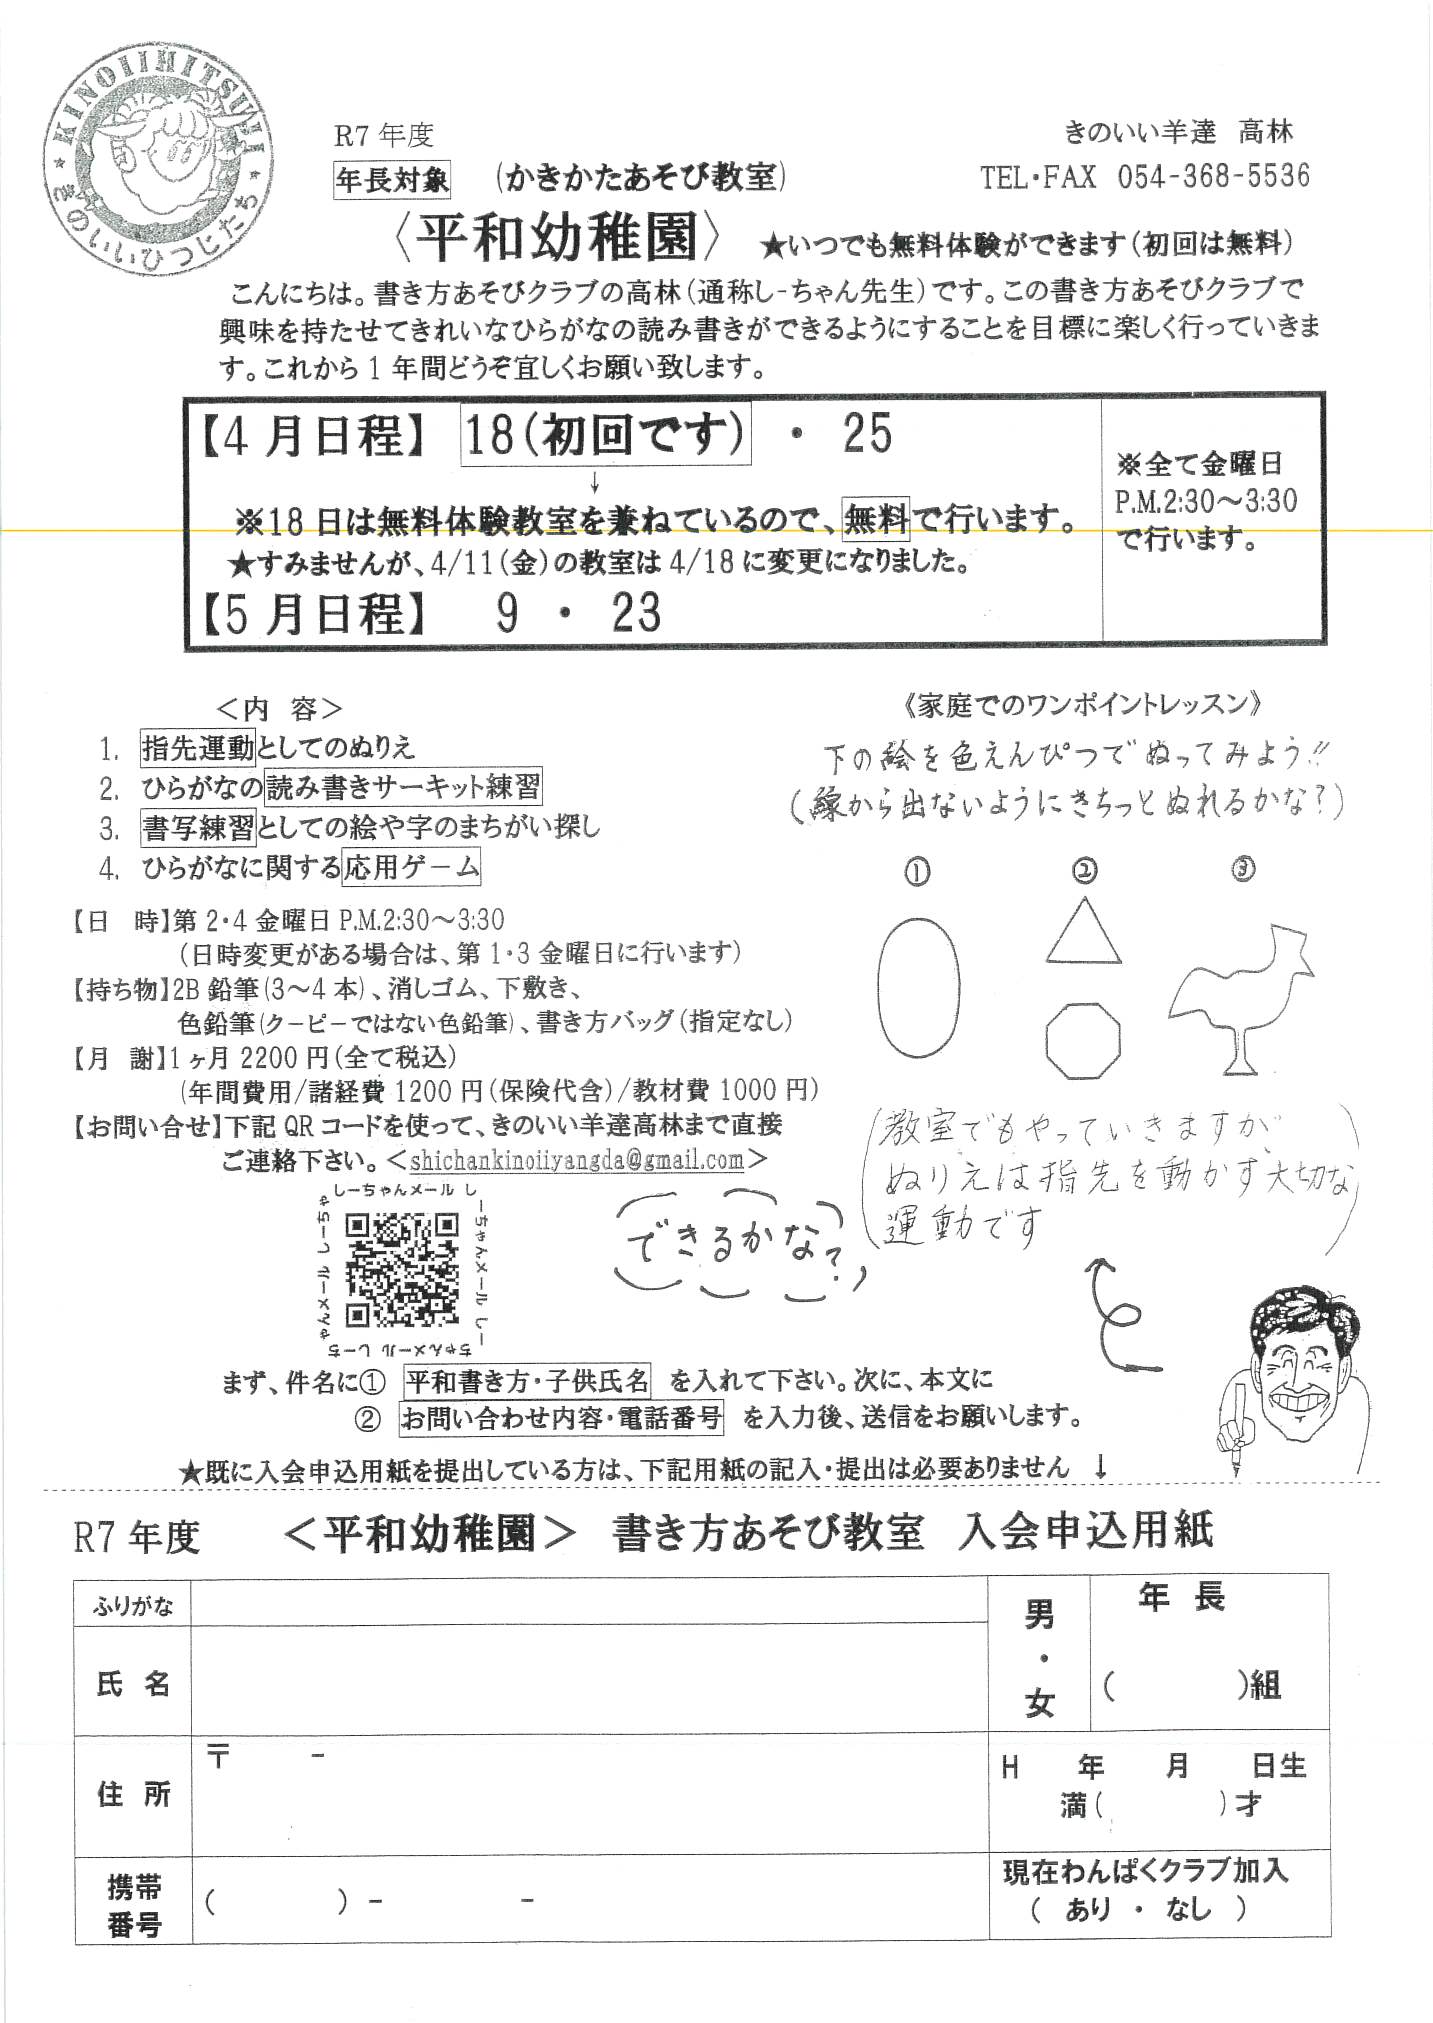 KINOIIHITSUJI
きのいいひつじたち
R7 年度
きのいい羊達 高林
年長対象 (かきかたあそび教室)
TEL・FAX 054-368-5536
〈平和幼稚園〉 ★いつでも無料体験ができます(初回は無料)
こんにちは。書き方あそびクラブの高林(通称し-ちゃん先生)です。この書き方あそびクラブで
興味を持たせてきれいなひらがなの読み書きができるようにすることを目標に楽しく行っていきま
す。これから1年間どうぞ宜しくお願い致します。
【4月日程】 18(初回です) ・ 25
↓
※18日は無料体験教室を兼ねているので、無料で行います。
★すみませんが、4/11(金)の教室は4/18に変更になりました。
【5月日程】 9 ・ 23
※全て金曜日
P.M.2:30～3:30
で行います。
＜内 容＞
1. 指先運動としてのぬりえ
2. ひらがなの読み書きサーキット練習
3. 書写練習としての絵や字のまちがい探し
4. ひらがなに関する応用ゲーム
《家庭でのワンポイントレッスン》
下の絵を色えんぴつでぬってみよう!!
(縁から出ないようにきちっとぬれるかな?)
① ② ③
【日 時】第2・4金曜日P.M.2:30～3:30
(日時変更がある場合は、第1・3金曜日に行います)
【持ち物】2B鉛筆(3～4本)、消しゴム、下敷き、
色鉛筆(ク－ピ－ではない色鉛筆)、書き方バッグ(指定なし)
【月 謝】1ヶ月2200円(全て税込)
(年間費用/諸経費1200円(保険代含)/教材費1000円)
【お問い合せ】下記QRコードを使って、きのいい羊達高林まで直接
ご連絡下さい。＜shichankinoiiyangda@gmail.com＞
(教室でもやっていきますが、
ぬりえは指先を動かす大切な
運動です)
しーちゃんメール し
ーちゃんメール しー
ちゃんメール しーち
ゃんメール しーちゃ
できるかな?
まず、件名に① 平和書き方・子供氏名 を入れて下さい。次に、本文に
② お問い合わせ内容・電話番号 を入力後、送信をお願いします。
★既に入会申込用紙を提出している方は、下記用紙の記入・提出は必要ありません ↓
R7年度 ＜平和幼稚園＞ 書き方あそび教室 入会申込用紙
ふりがな
氏 名
男・女
年 長
( )組
住 所
〒 -
H 年 月 日生
満( )才
携帯
番号
( ) - -
現在わんぱくクラブ加入
( あり ・ なし )